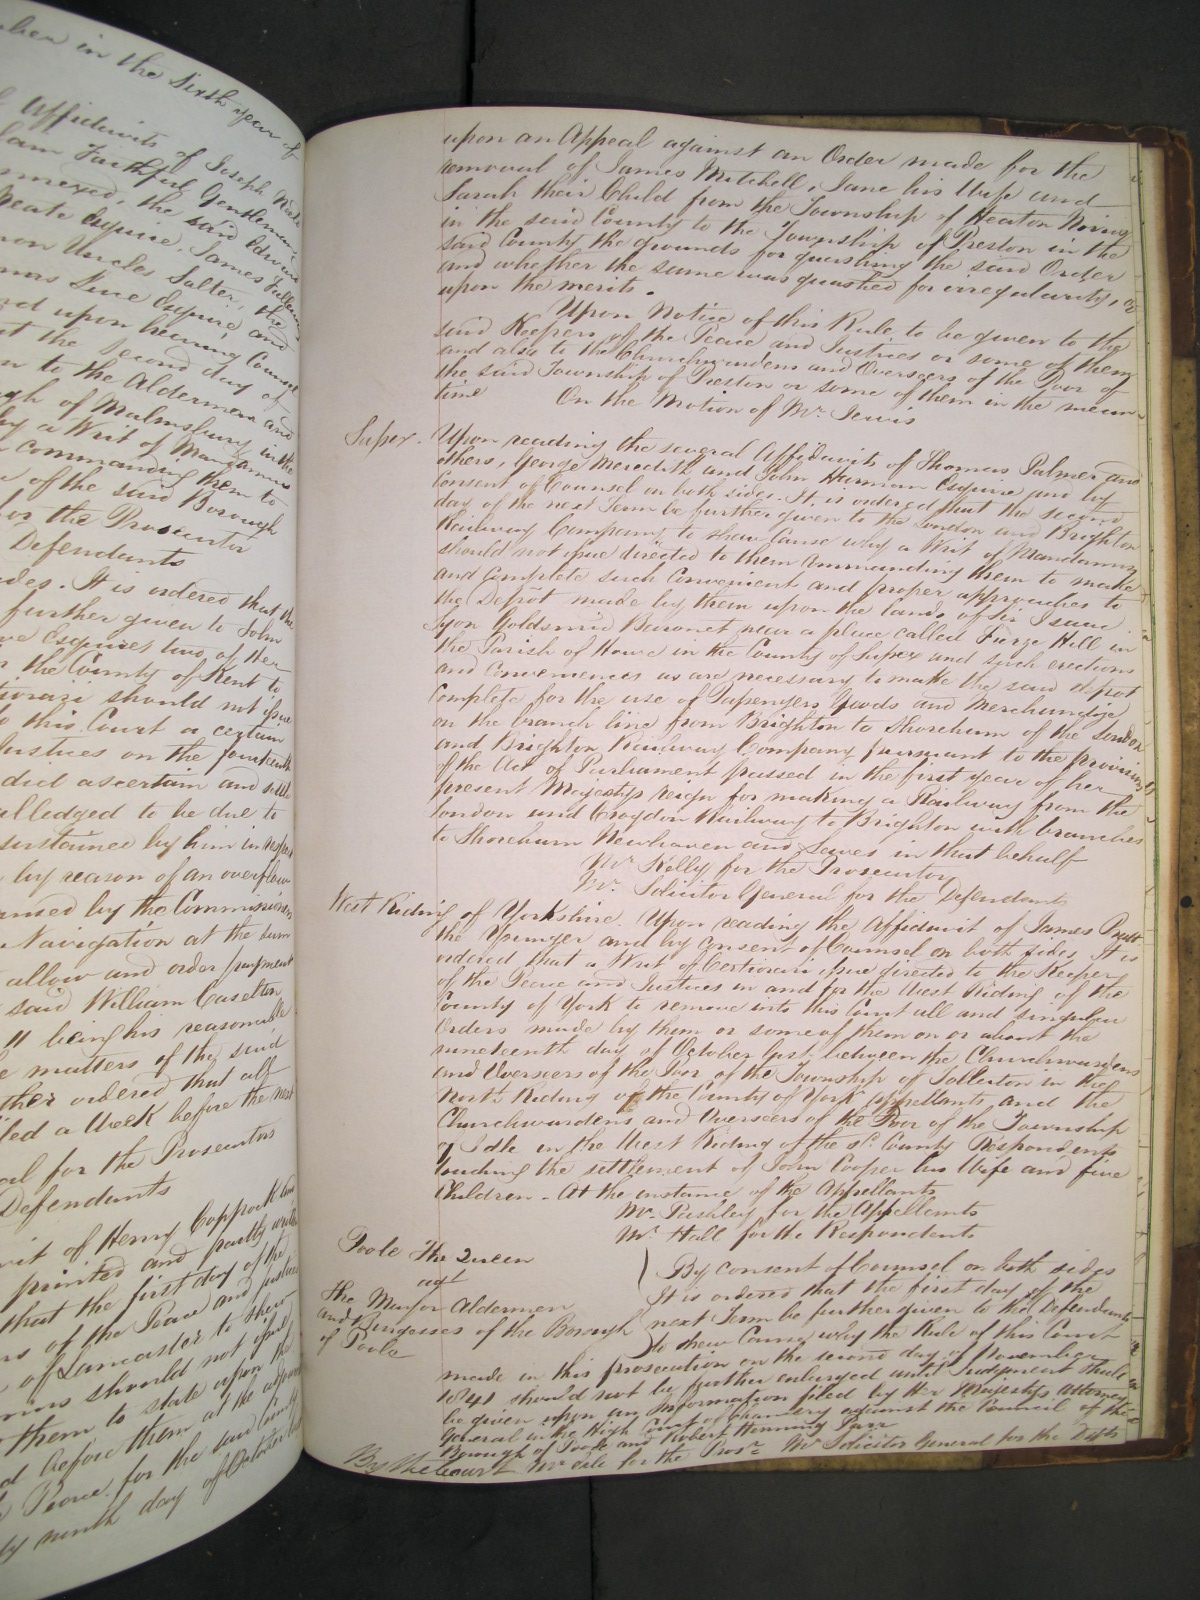 when in the Sixth year of
Affidavits of Joseph
Faithful Gentleman
annexed, the said Edwin
Esquire, James
Uncles Salter, the
Esquire and
and upon hearing Counsel
the second day of
to the Aldermen and
of Malmsbury in the
by a Writ of Mandamus
commanding them to
of the said Borough
for the Prosecutor
Defendants
sides. It is ordered that the
further given to John
Esquires two of Her
the County of Kent to
should not issue
to this Court a certain
Justices on the fourteenth
did ascertain and settle
alledged to be due to
sustained by him in respect
by reason of an overflow
caused by the Commissioners
Navigation at the sum
allow and order payment
said William Caselton
11 being his reasonable
matters of the said
further ordered that all
filed a Week before the next
for the Prosecutors
Defendants
of Henry Coppock and
printed and partly written
that the first day of the
of the Peace and Justices
of Lancaster to shew
should not issue
them to state upon the
before them at the adjourned
Peace for the said County
ninth day of October last
upon an Appeal against an Order made for the
removal of James Mitchell, Jane his Wife and
Sarah their Child from the Township of Heaton Norris
in the said County to the Township of Preston in the
said County the grounds for quashing the said Order
and whether the same was quashed for irregularity, or
upon the merits.
Upon Notice of this Rule to be given to the
said Keepers of the Peace and Justices or some of them
and also to the Churchwardens and Overseers of the Poor of
the said Township of Preston or some of them in the mean
time On the Motion of Mr. Lewis
Sussex. Upon reading the several Affidavits of Thomas Palmer and
others, George Meredith and John Harman Esquire and by
Consent of Counsel on both sides. It is ordered that the second
day of the next Term be further given to the London and Brighton
Railway Company to shew Cause why a Writ of Mandamus
should not issue directed to them Commanding them to make
and Complete such Convenient and proper approaches to
the Depôt made by them upon the lands of Sir Isaac
Lyon Goldsmid Baronet near a place called Furze Hill in
the Parish of Hove in the County of Sussex and such erections
and Conveniences as are necessary to make the said depôt
Complete for the use of Passengers Goods and Merchandize
on the branch line from Brighton to Shoreham of the London
and Brighton Railway Company pursuant to the provisions
of the Act of Parliament passed in the first year of her
present Majestys reign for making a Railway from the
London and Croydon Railway to Brighton with branches
to Shoreham Newhaven and Lewes in that behalf
Mr. Kelly for the Prosecutor
Mr. Solicitor General for the Defendants
West Riding of Yorkshire. Upon reading the Affidavit of James
the Younger and by Consent of Counsel on both sides, It is
ordered that a Writ of Certiorari issue directed to the Keepers
of the Peace and Justices in and for the West Riding of the
County of York to remove into this Court all and singular
Orders made by them or some of them on or about the
nineteenth day of October last between the Churchwardens
and Overseers of the Poor of the Township of Tollerton in the
North Riding of the County of York Appellants and the
Churchwardens and Overseers of the Poor of the Township
of Idle in the West Riding of the sd. County Respondents
touching the settlement of John Cooper his Wife and five
Children. At the instance of the Appellants
Mr. Pashley for the Appellants
Mr. Hall for the Respondents
Poole The Queen
agt
the Mayor Aldermen
and Burgesses of the Borough
of Poole
By consent of Counsel on both sides
It is ordered that the first day of the
next Term be further given to the Defendants
to shew Cause why the Rule of this Court
made in this prosecution on the second day of November
1841 should not be further enlarged until Judgment shall
be given upon an Information filed by Her Majestys Attorney
General in the High Court of Chancery against the Council of the
Borough of Poole and Robert Henning Parr
By the Court Mr. Erle for the Prosr. Mr Solicitor General for the Defts